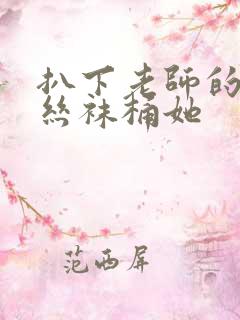 扒下老師的
絲袜桶她
范西屏